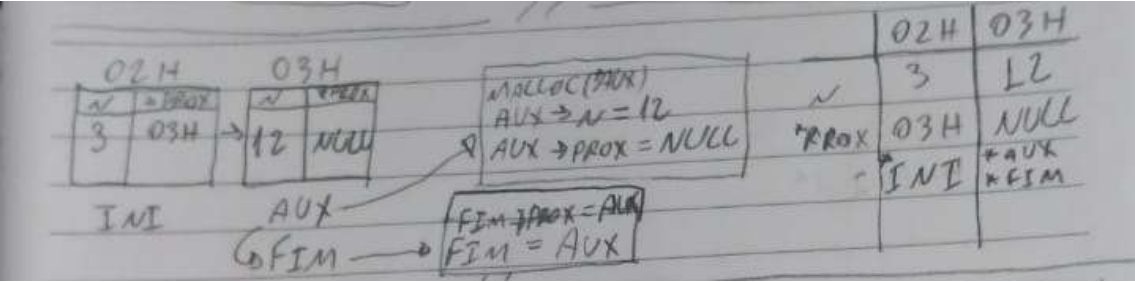 02H 03H
N *PROX N *PROX
3 03H → 12 NULL
INI AUX
FIM
MALLOC(
AUX → N = 12
AUX → PROX = NULL
FIM → PROX = AUX
FIM = AUX
02H 03H
N 3 12
*PROX 03H NULL
*INI *AUX
*FIM